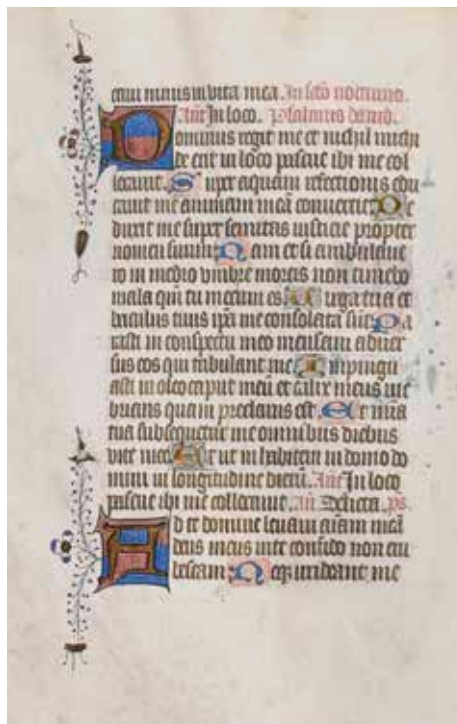 in vita mea. In scdo nocturno.
Ant In loco. Psalmus david.
Dominus regit me et nichil michi
de erit in loco pascue ibi me col
locavit. Super aquam refectionis edu
cavit me animam meā convertit. De
duxit me super semitas iusticie propter
nomen suum. Nam et si ambulave
ro in medio umbre mortis non timebo
mala qm tu mecum es. Virga tua et
baculus tuus ipā me consolata sūt. Pa
rasti in conspectu meo mensam adver
sus eos qui tribulant me. Impingu
asti in oleo caput meū et calix meus ine
brians quam preclarus est. Et mia
tua subsequetur me omnibus diebus
vite mee. Et ut inhabitem in domo do
mini in longitudine dierū. Ant In loco
pascue ibi me collocavit. Añ Delicta. ps
Ad te domine levavi aīam meā
deus meus in te confido non eru
bescam. Neq irrideant me